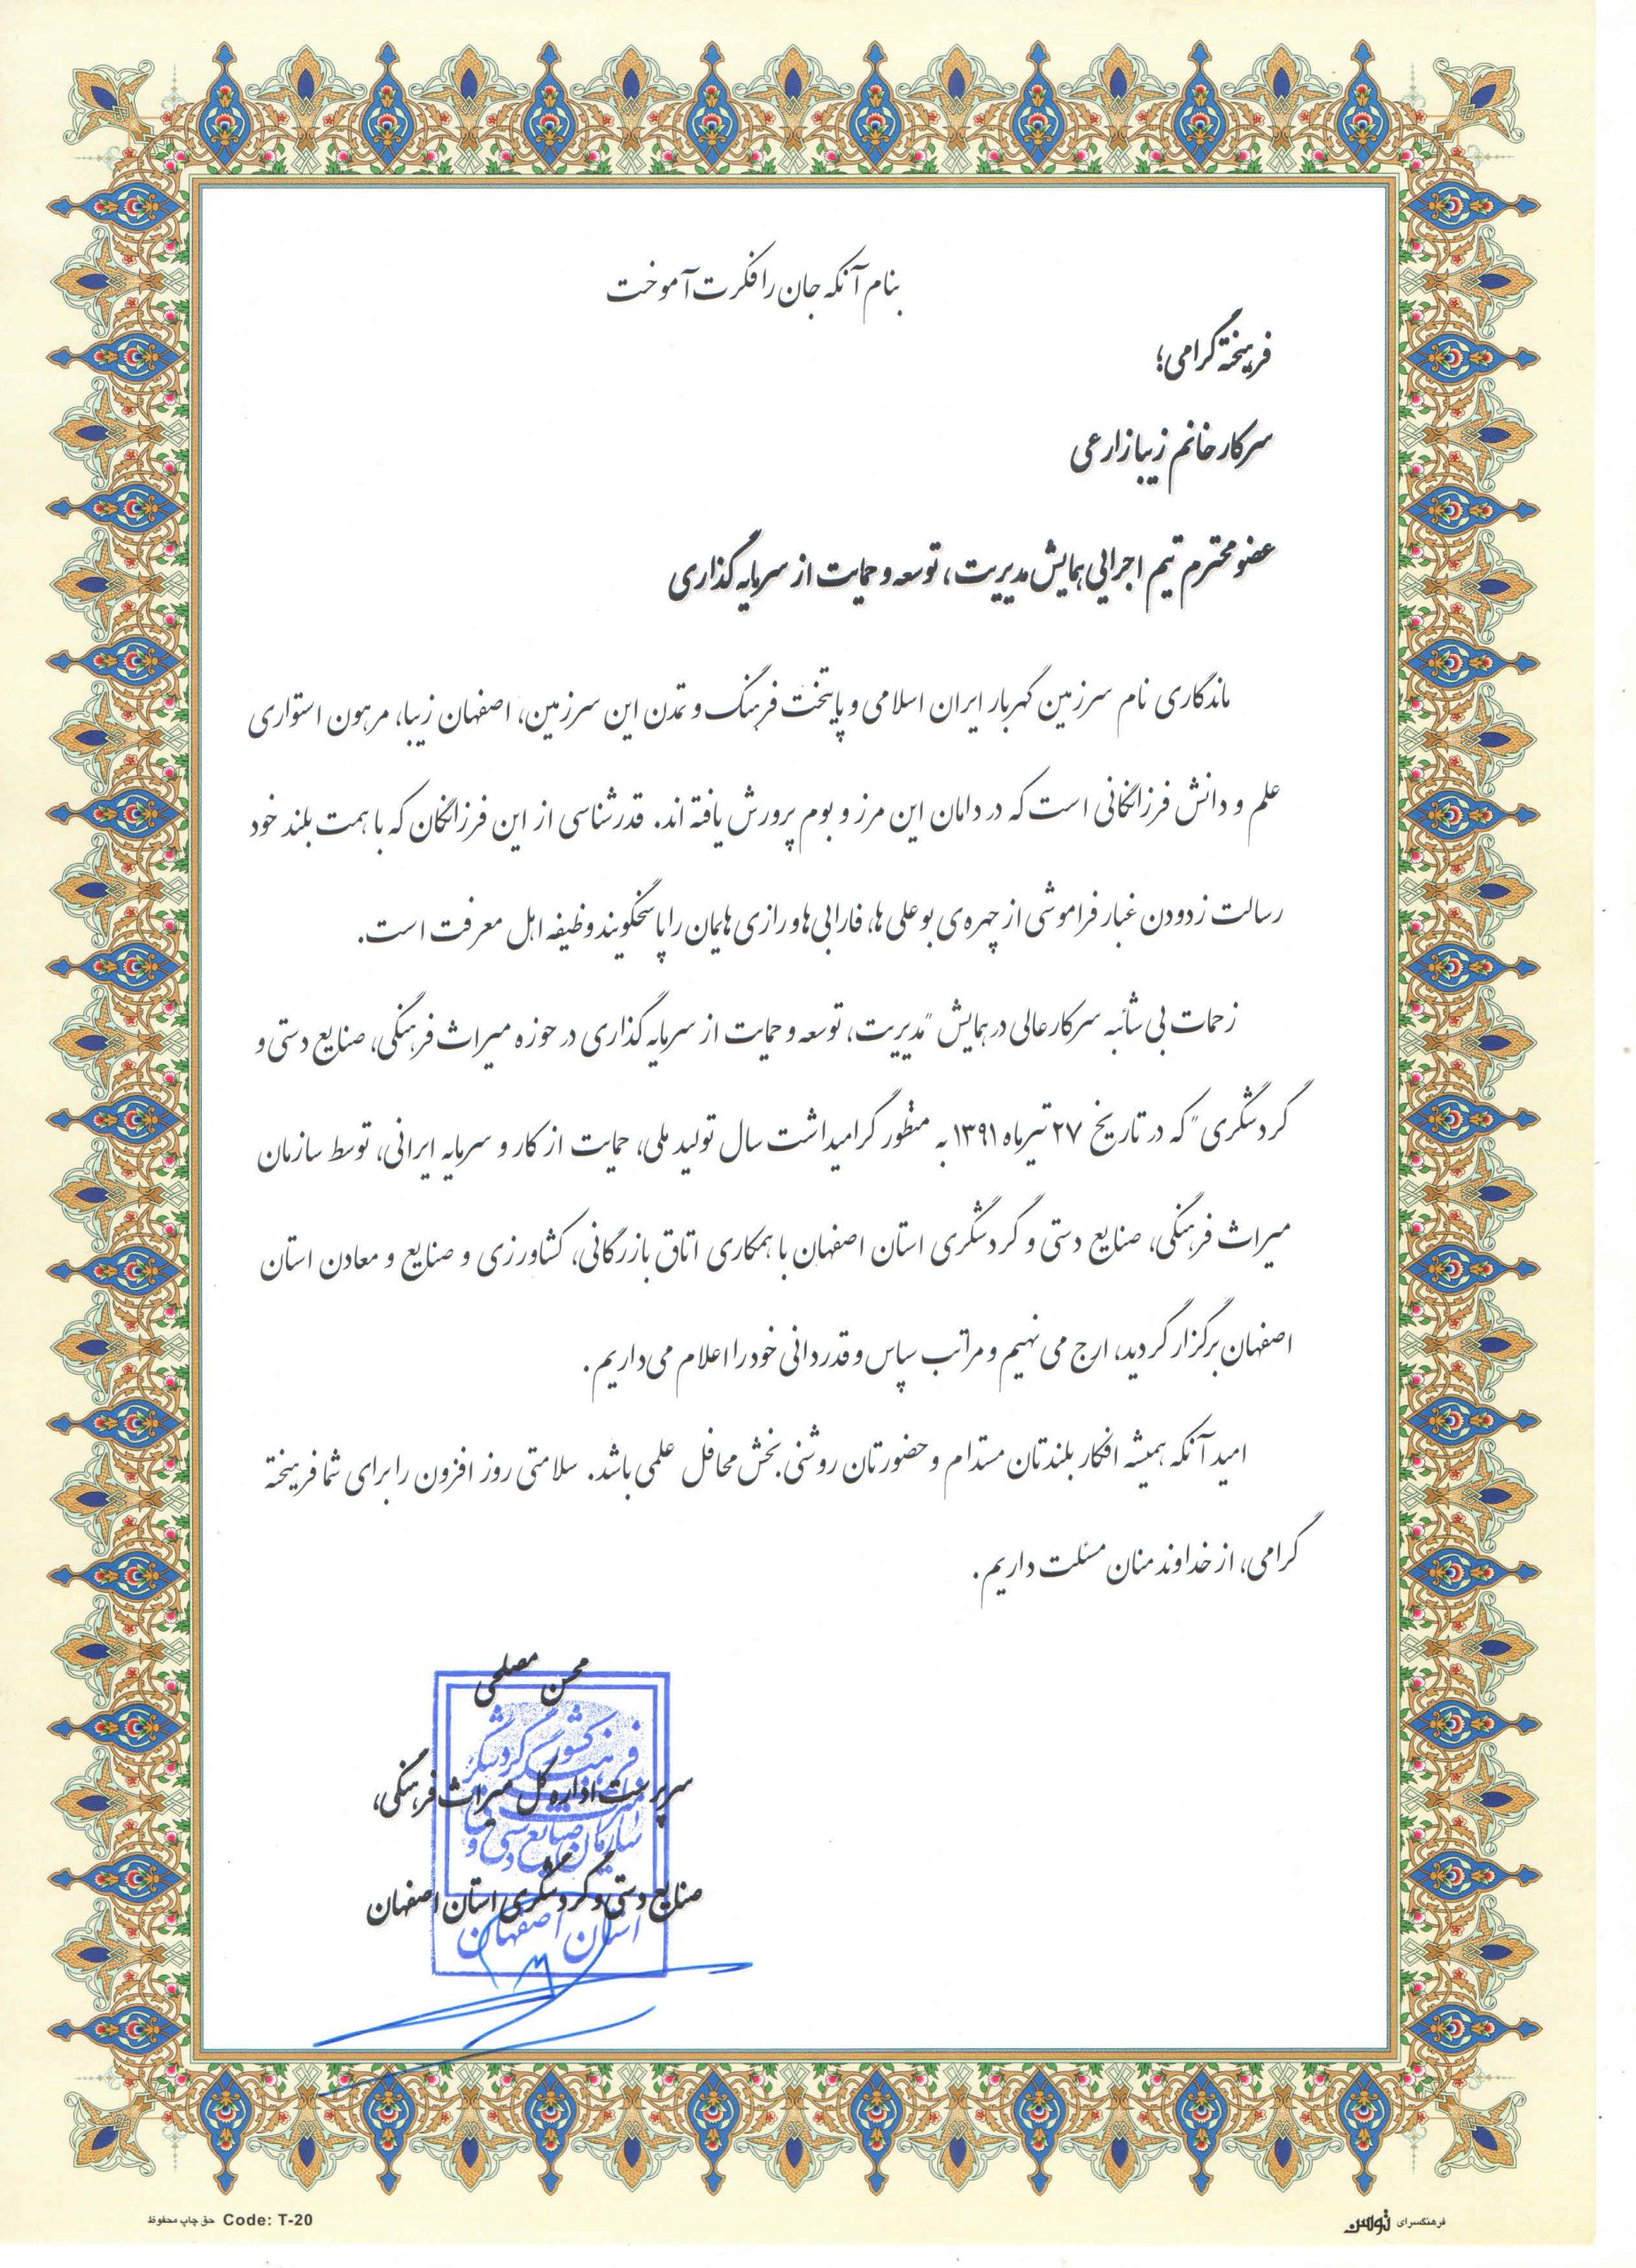 بنام آنکه جان را فکرت آموخت
فرهیخته گرامی؛
سرکار خانم زیبا زارعی
عضو محترم تیم اجرایی همایش مدیریت، توسعه و حمایت از سرمایه گذاری
ماندگاری نام سرزمین گهربار ایران اسلامی و پایتخت فرهنگ و تمدن این سرزمین، اصفهان زیبا، مرهون استواری
علم و دانش فرزانگانی است که در دامان این مرز و بوم پرورش یافته اند. قدرشناسی از این فرزانگان که با همت بلند خود
رسالت زدودن غبار فراموشی از چهره ی بوعلی ها، فارابی ها و رازی هایمان را پاسخگویند وظیفه اهل معرفت است.
زحمات بی شائبه سرکارعالی در همایش "مدیریت، توسعه و حمایت از سرمایه گذاری در حوزه میراث فرهنگی، صنایع دستی و
گردشگری" که در تاریخ ۲۷ تیرماه ۱۳۹۱ به منظور گرامیداشت سال تولید ملی، حمایت از کار و سرمایه ایرانی، توسط سازمان
میراث فرهنگی، صنایع دستی و گردشگری استان اصفهان با همکاری اتاق بازرگانی، کشاورزی و صنایع و معادن استان
اصفهان برگزار گردید، ارج می نهیم و مراتب سپاس و قدردانی خود را اعلام می داریم.
امید آنکه همیشه افکار بلندتان مستدام و حضورتان روشنی بخش محافل علمی باشد. سلامتی روز افزون را برای شما فرهیخته
گرامی، از خداوند منان مسئلت داریم.
محسن مصلحی
سرپرست اداره کل میراث فرهنگی،
صنایع دستی و گردشگری استان اصفهان
سازمان میراث فرهنگی صنایع دستی و گردشگری کشور
استان اصفهان
حق چاپ محفوظ Code: T-20
فرهنگسرای توس